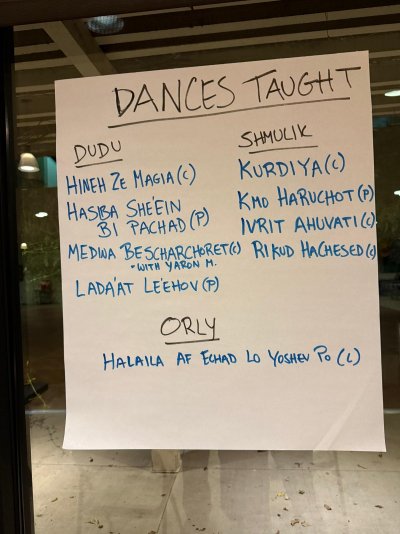 DANCES TAUGHT
DUDU
HINEH ZE MAGIA (C)
HASIBA SHE'EIN
BI PACHAD (P)
MEDINA BESCHARCHORET (C)
- WITH YARON M.
LADA'AT LE'EHOV (P)
SHMULIK
KURDIYA (C)
KMO HARUCHOT (P)
IVRIT AHUVATI (C)
RIKUD HACHESED (C)
ORLY
HALAILA AF ECHAD LO YOSHEV PO (L)